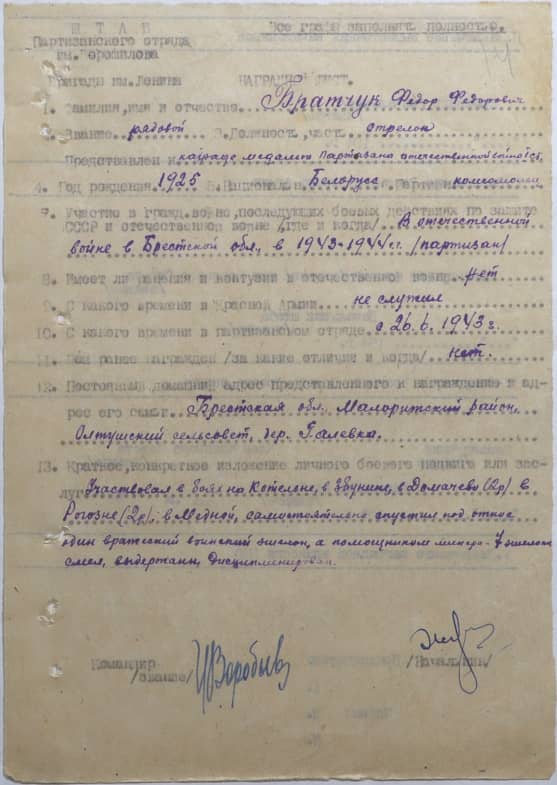 ШТАБ Все графы заполнять полностью.
Партизанского отряда
им. Ворошилова
Бригады им.Ленина НАГРАДНОЙ ЛИСТ.
1. Фамилия,имя и отчество Братчук Федор Федорович
2. Звание рядовой 3.Должность,часть стрелок
Представлен к награде медалью Партизана отечественной войны
4. Год рождения 1925 5.Национальн. Белорус 6.Партийн. комсомолец
7. Участие в гражд.войне,последующих боевых действиях по защите
СССР и отечественной войне /где и когда/ В отечественной
войне в Брестской обл., в 1943-1944 г.г. /партизан/
8. Имеет ли ранения и контузии в отечественной войне нет
9. С какого времени в Красной Армии не служил
10. С какого времени в партизанском отряде с 26.6.1943 г.
11. Чем ранее награжден /за какие отличия и когда/ нет.
12. Постоянный домашний адрес представленного к награждению и ад-
рес его семьи. Брестская обл. Малоритский район,
Олтушский сельсовет, дер. Галевка.
13. Краткое,конкретное изложение личного боевого подвига или зас-
луг Участвовал в боях на Котелоне, в Збунине, в Домачево (2р) в
Рогозне (2р), в Медной, самостоятельно спустил под откос
один вражеский воинский эшелон, а помощником минера - 7 эшелонов
смел, выдержан, дисциплинирован.
Командир Воробьев /Начальник/
/звание/